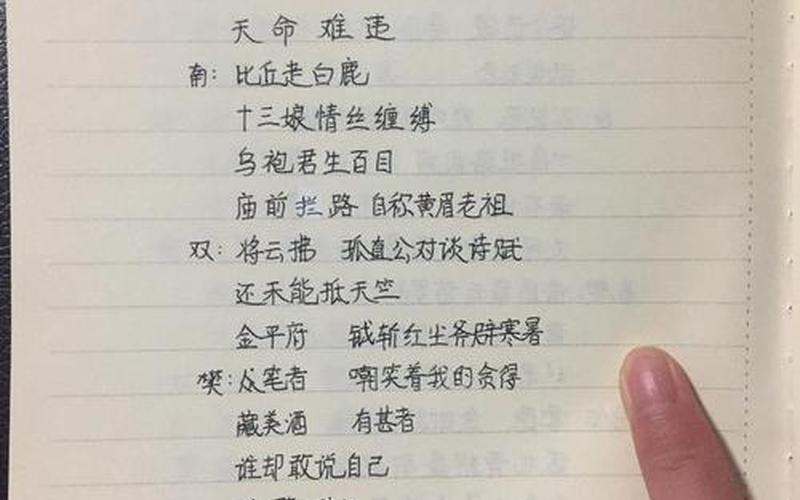 天命难违
南: 比丘走白鹿
十三娘情丝缠缚
乌袍君生百目
庙前拦路 自称黄眉老祖
双: 将云拂 孤直公对谈诗赋
还未能抵天竺
金平府 钺斩红尘斧辟寒暑
樊: 众笔者 嘲笑着我的贪得
藏美酒 有甚者
谁却敢说自己